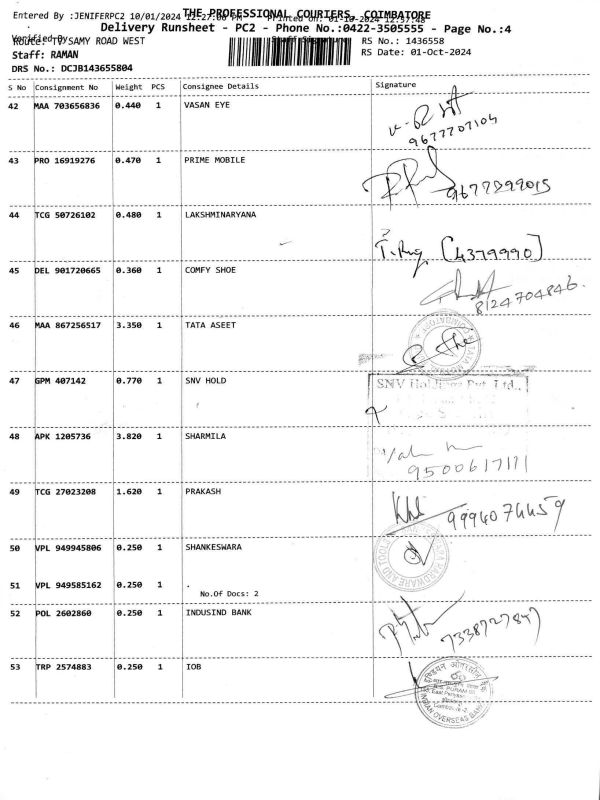 THE PROFESSIONAL COURIERS, COIMBATORE
Entered By :JENIFERPC2 10/01/2024 12:27:00 PM Printed on: 01-10-2024 12:57:48
Delivery Runsheet - PC2 - Phone No.:0422-3505555 - Page No.:4
Verified By Staff Signature
Route: TV SAMY ROAD WEST RS No.: 1436558
Staff: RAMAN RS Date: 01-Oct-2024
DRS No.: DCJB143655804
S No Consignment No Weight PCS Consignee Details Signature
42 MAA 703656836 0.440 1 VASAN EYE
9677707104
43 PRO 16919276 0.470 1 PRIME MOBILE
9677399015
44 TCG 50726102 0.480 1 LAKSHMINARYANA
(4379990)
45 DEL 901720665 0.360 1 COMFY SHOE
8124704846.
46 MAA 867256517 3.350 1 TATA ASEET
47 GPM 407142 0.770 1 SNV HOLD
SNV Holdings Pvt. Ltd.,
48 APK 1205736 3.820 1 SHARMILA
9500617111
49 TCG 27023208 1.620 1 PRAKASH
9994074459
50 VPL 949945806 0.250 1 SHANKESWARA
51 VPL 949585162 0.250 1 .
No.Of Docs: 2
52 POL 2602860 0.250 1 INDUSIND BANK
7338727847
53 TRP 2574883 0.250 1 IOB
INDIAN OVERSEAS BANK